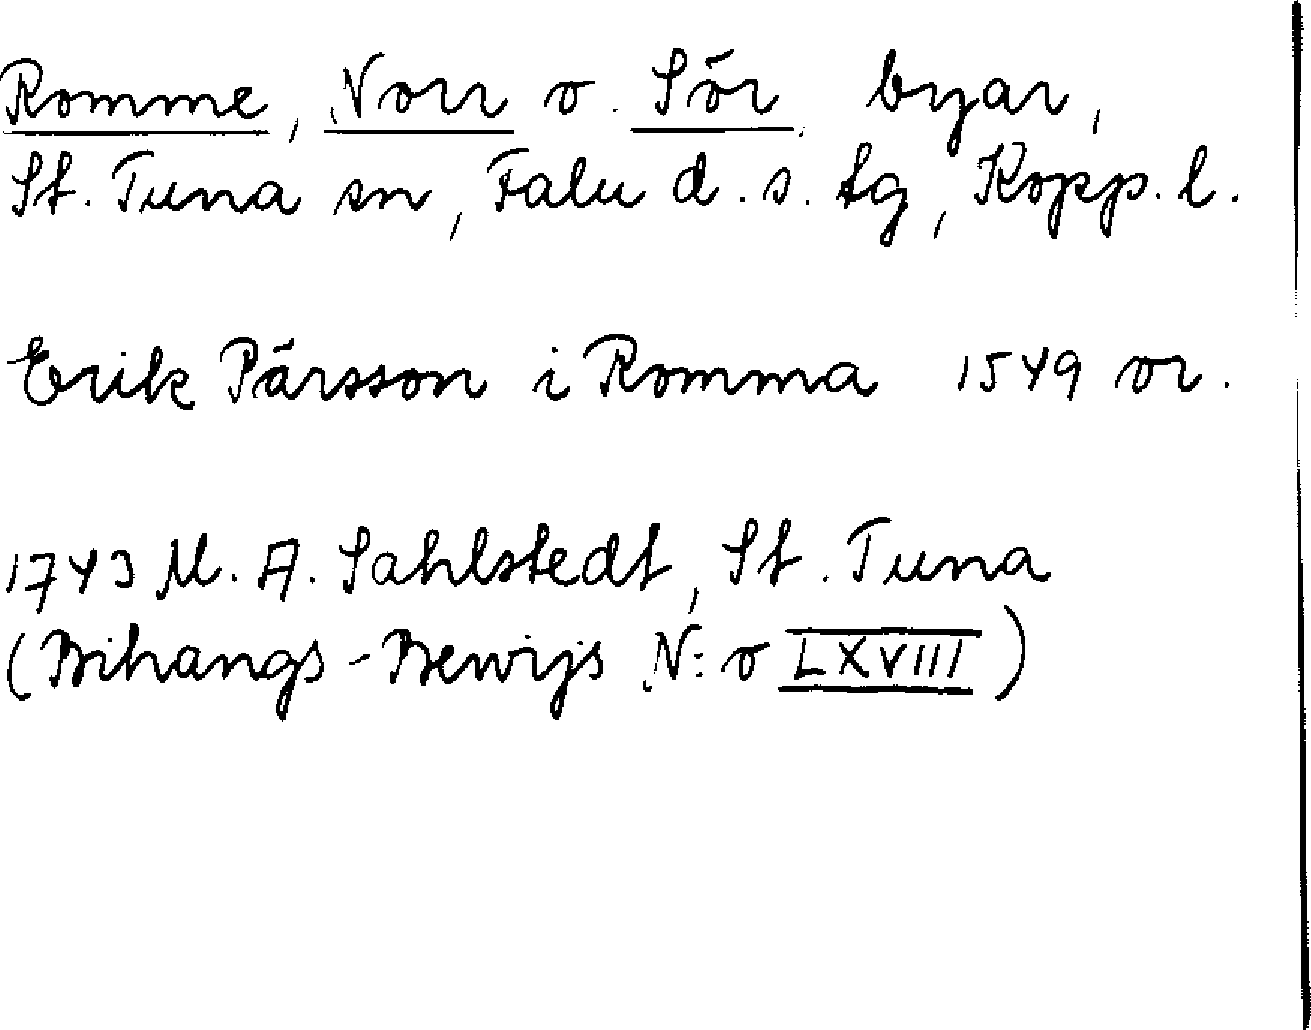 Romme, Norr o. Sör byar,
St. Tuna sn, Falu d. s. tg, Kopp. l.
Erik Pärsson i Romma 1549 or.
1743 M. A. Sahlstedt, St. Tuna
(Bihangs-Bewijs N:o LXVIII)